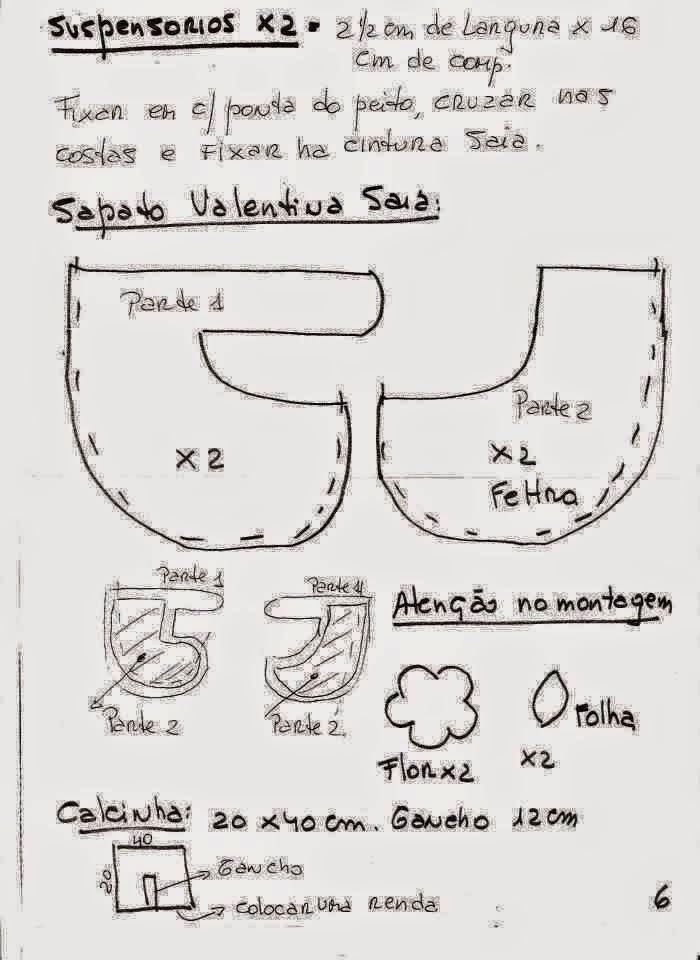 Suspensorios x2 - 2 1/2 cm de Largura x 16
cm de comp.
Fixar em c/ ponta do peito, cruzar nas
costas e Fixar na cintura Saia.
Sapato Valentina Saia:
Parte 1
x2
Parte 2
x2
Feltro
Parte 1
Parte 2
Parte 1
Parte 2
Atenção no montagem
Flor x2
Folha
x2
Calcinha: 20 x 40 cm. Gancho 12 cm
40
20
Gancho
colocar uma renda
6